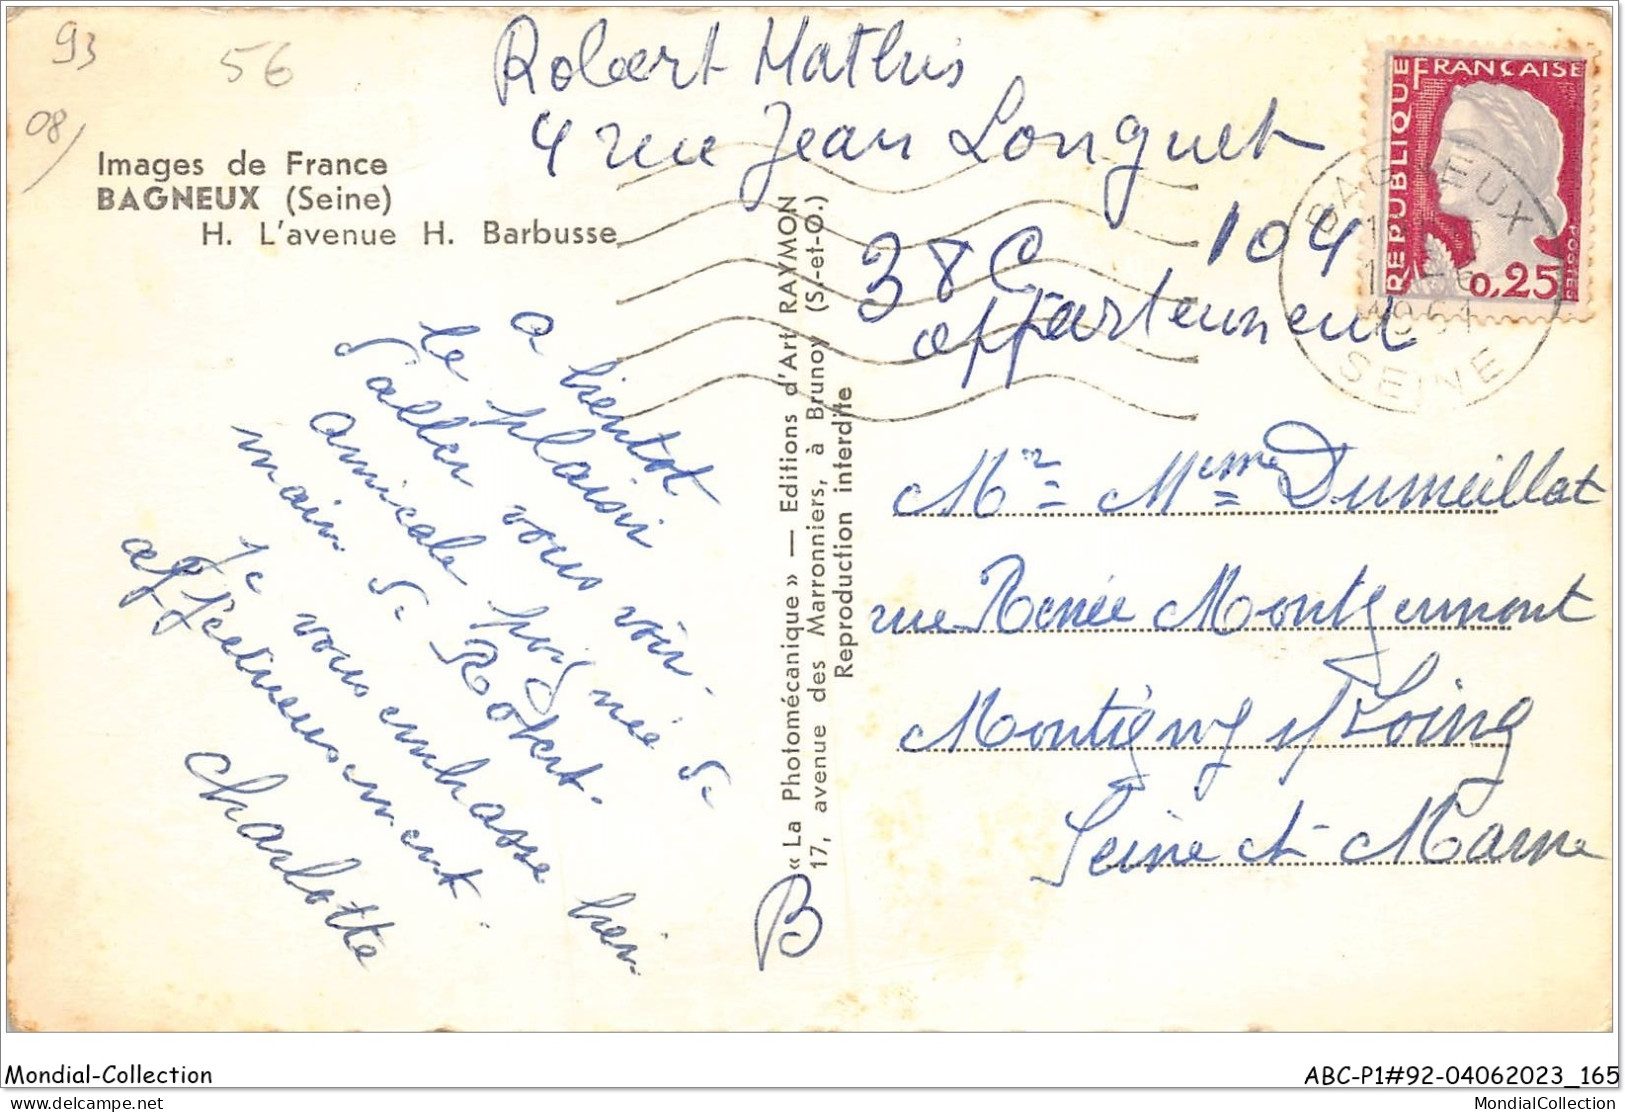 93
56
08/
Images de France
BAGNEUX (Seine)
H. L'avenue H. Barbusse
Robert Mathis
4 rue Jean Longuet
104
38 C
appartement
RÉPUBLIQUE FRANÇAISE
0,25
BAGNEUX
SEINE
a bientot
le plaisir
d'aller vous voir.
amicale poignée de
main de Robert.
Je vous embrasse bien
affectueusement.
Charlotte
B
« La Photomécanique » — Editions d'Art RAYMON
17, avenue des Marronniers, à Brunoy (S.-et-O.)
Reproduction interdite
Mr Meme Dumeillat
rue Renée Montgermont
Montigny s/ Loing
Seine et Marne
Mondial-Collection
ABC-P1#92-04062023_165
delcampe.net
MondialCollection